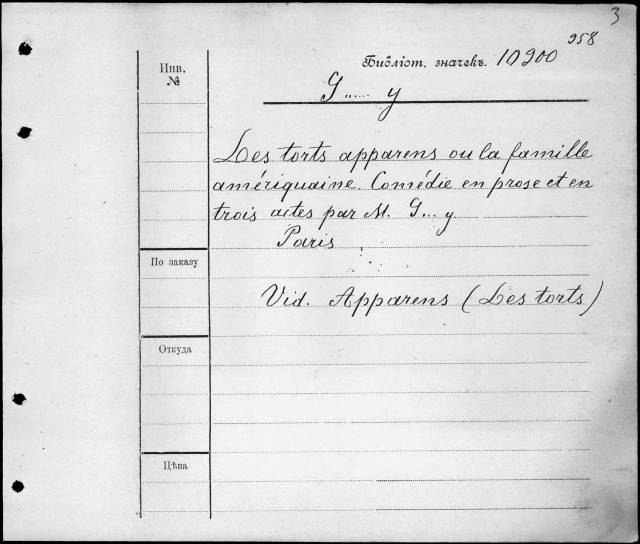 3
258
Библіот. значекъ. 10200
Инв.
№
G..... y
Les torts apparens ou la famille
amériquaine. Comédie en prose et en
trois actes par M. G... y
Paris
По заказу
Vid. Apparens (Les torts)
Откуда
Цѣна